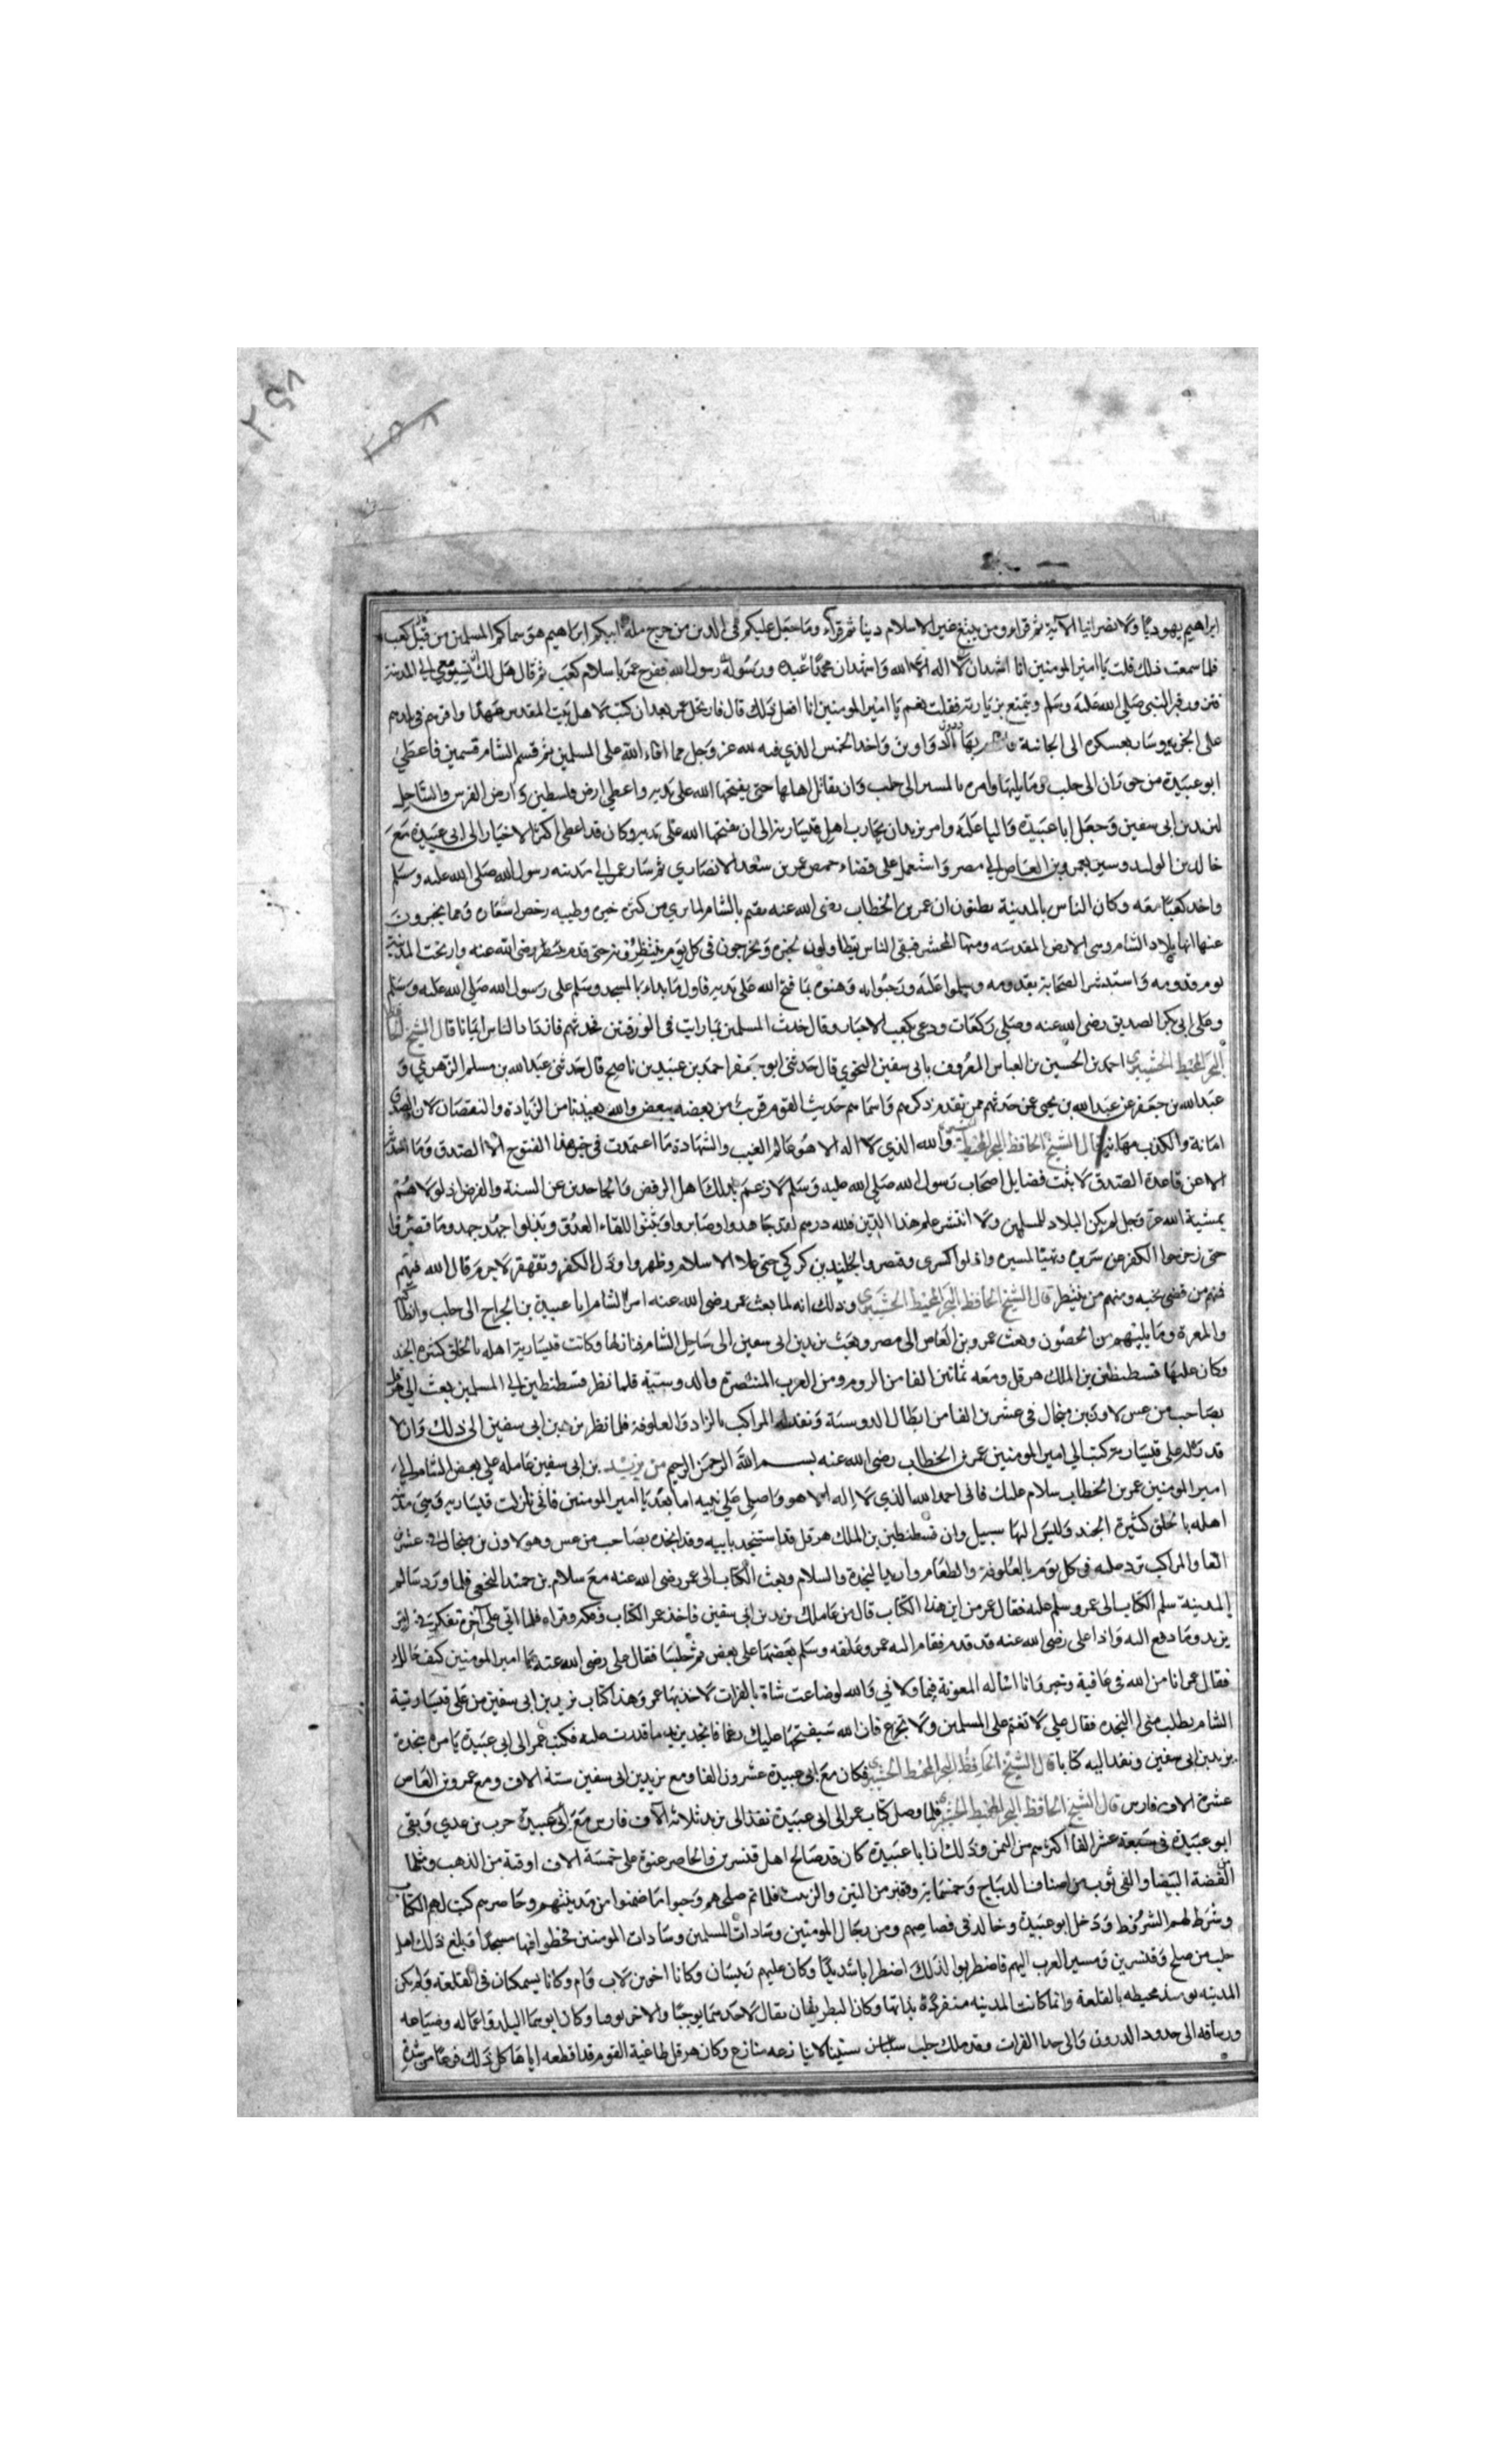 ابراهيم يهوديا ولا نصرانيا الآية ثم قراء ومن يبتغ غير الاسلام دينا ثم قراء وما جعل عليكم في الدين من حرج ملة ابيكم ابراهيم هو سماكم المسلمين من قبل كعب
فلما سمعت ذلك قلت يا امير المومنين انا اشهد ان لا اله الا الله واشهد ان محمدا عبده ورسوله رسول الله ففرح عمر باسلام كعب ثم قال هل لك ان تسير معي الى المدينة
فتزور قبر النبي صلى الله عليه وسلم وتتمتع بزيارته فقلت نعم يا امير المومنين انا افعل ذلك قال فارتحل عمر بعد ان كتب لاهل بيت المقدس عهدا واقرهم في بلدهم
على الجزيه وسار بعسكره الى الجابية بها الدواوين واخد الخمس الذي فيه لله عز وجل مما افاء الله على المسلمين ثم قسم الشام قسمين فاعطى
ابو عبيدة من حوران الى حلب وما يليها وامره بالمسير الى حلب وان يقاتل اهلها حتى يفتحها الله على يديه واعطى ارض فلسطين وارض القدس والساحل
ليزيد بن ابي سفين وجعل ابا عبيدة واليا عليه وامر يزيد ان يحارب اهل قيسارية الى ان يفتحها الله على يديه وكان قد اعطى اكثر الاخيار الى ابي عبيدة مع
خالد بن الوليد وسير عمرو بن العاص الى مصر واستعمل على قضاء حمص عمر بن سعد الانصاري ثم سار عمر الى مدينة رسول الله صلى الله عليه وسلم
واخد كعبا معه وكان الناس بالمدينة يظنون ان عمر بن الخطاب رضى الله عنه يقيم بالشام لما يرى من كثرة خيره وطيبه ورخص اسعاره وما يخبرون
عنها انها بلاد الشام وهي الارض المقدسه ومنها المحشر فبقى الناس يتطاولون لخبره ويخرجون في كل يوم ينتظرونه حتى قدم عمر رضى الله عنه وارتجت المدينة
يوم قدومه واستبشر الصحابة بقدومه وسلموا عليه ورحبوا به وهنوه بما فتح الله على يديه فاول ما بداء بالمسجد وسلم على رسول الله صلى الله عليه وسلم
وعلى ابي بكر الصديق رضى الله عنه وصلى ركعات ودعى بكعب الاحبار وقال حدث المسلمين بما رايت في الورقتين فحدثهم فازداد الناس ايمانا قال الشيخ الحافظ
البحر المحيط احمد بن الحسين بن العباس المعروف بابي سفين النحوي قال حدثني ابو جعفر احمد بن عبيد بن ناصح قال حدثني عبد الله بن مسلم الزهري و
عبد الله بن جعفر عن عبد الله بن يحيى عن حدثهم ممن تقدم ذكرهم واسماهم حديث القوم قريب من بعضه ببعض والله يعيذنا من الزيادة والنقصان لان الصدق
امانة والكذب مهانة قال الشيخ الحافظ البحر المحيط والله الذي لا اله الا هو عالم الغيب والشهادة ما اعتمدت في خبر هذا الفتوح الا الصدق وما
الا عن قاعدة الصدق لاثبت فضايل اصحاب رسول الله صلى الله عليه وسلم لارغم بذلك اهل الرفض والجاحدين عن السنة والفرض اذ لولا هم
بمشية الله عز وجل لم يكن البلاد للمسلمين ولا انتشر علم هذا الدين فلله درهم لقد جاهدوا وصابروا وثبتوا للقاء العدو وبذلوا جهدهم وما قصروا
حتى زحزحوا الكفر عن سريره وتهيا لمسيره واذلوا كسرى وقيصر والجلندي بن كركي حتى علا الاسلام وظهر وذل الكفر وتقهقر لاجرم قال الله فيهم
فمنهم من قضى نحبه ومنهم من ينتظر قال الشيخ الحافظ البحر المحيط وذلك انه لما بعث عمر رضى الله عنه امر الشام ابا عبيدة بن الجراح الى حلب وانطاكية
والمعرة وما يليهم من الحصون وبعث عمرو بن العاص الى مصر وبعث يزيد بن ابي سفين الى ساحل الشام فنازلها وكانت قيسارية اهله بالخلق كثيرة الجند
وكان عليها قسطنطين بن الملك هرقل ومعه ثمانين الفا من الروم ومن العرب المتنصرة والدوستية فلما نظر قسطنطين الى المسلمين بعث الى هرقل
بصاحب مرعس لاون بن منجال في عشرين الفا من ابطال الدوسية ونفد له المراكب بالزاد والعلوفة فلما نظر يزيد بن ابي سفين الى ذلك وان لا
قد نزله على قيسارية كتب الى امير المومنين عمر بن الخطاب رضى الله عنه بسم الله الرحمن الرحيم من يزيد بن ابي سفين عامله على بعض الشام الى
امير المومنين عمر بن الخطاب سلام عليك فاني احمد الله الذي لا اله الا هو واصلي على نبيه اما بعد يا امير المومنين فاني نازلت قيسارية وهي مدينة
اهله بالخلق كثيرة الجند وليس اليها سبيل وان قسطنطين بن الملك هرقل قد استنجد بابيه وقد انجده بصاحب مرعس وهو لاون بن منجال في عشرين
الفا والمراكب ترد عليه في كل يوم بالعلوفة والطعام واريد النجدة والسلام وبعث الكتاب الى عمر رضى الله عنه مع سلام بن حميد النخعي فلما ورد سالم
المدينة سلم الكتاب الى عمر وسلم عليه فقال عمر من اين هذا الكتاب قال من عاملك يزيد بن ابي سفين فاخذ عمر الكتاب وفكه وقراه فلما اتى على آخره تفكر في امر
يزيد وما دفع اليه واذا على رضى الله عنه قد قدم فقام اليه عمر وعانقه وسلم بعضهما على بعض ثم جلسا فقال على رضى الله عنه يا امير المومنين كيف حالك
فقال عمر انا من الله في عافية وخير وانا اسأله المعونة فيما ولاني والله لو ضاعت شاة بالفرات لاخذ بها عمر وهذا كتاب يزيد بن ابي سفين من على قيسارية
الشام يطلب مني النجده فقال على لا تغتم على المسلمين ولا تجزع فان الله سيفتحها عليك رغما فانجد يزيد ما قدرت عليه فكتب عمر الى ابي عبيدة يامره بنجدة
يزيد بن ابي سفين ونفد اليه كتابا قال الشيخ الحافظ البحر المحيط فكان مع ابي عبيدة عشرون الفا ومع يزيد بن ابي سفين ستة الاف ومع عمرو بن العاص
عشرة الاف فارس قال الشيخ الحافظ البحر المحيط فلما وصل كتاب عمر الى ابي عبيدة نفذ الى يزيد ثلاثة آلاف فارس مع ابي عبيدة حرب بن عدي وبقى
ابو عبيدة في سبعة عشر الفا اكثرهم من اليمن وذلك ان ابا عبيدة كان قد صالح اهل قنسرين والحاضر عنوة على خمسة الاف اوقية من الذهب ومثلها
من الفضة البيضا والفي ثوب من اصناف الديباج وخمسماية وقير من التين والزيت فلما تم صلحهم وجبوا ما ضمنوا من مدينتهم وحاضرهم كتب لهم الكتاب
وشرط لهم الشروط ودخل ابو عبيدة وخالد في ومن رجال المومنين وسادات المسلمين وسادات المومنين فخطوا فيها مسجدا فبلغ ذلك اهل
حلب من صلح وقنسرين ومسير العرب اليهم فاضطربوا لذلك اضطرابا شديدا وكان عليهم رئيسان وكانا اخوين لاب وام وكانا يسكنان في القلعه ولم يكن
المدينه يومئذ محيطه بالقلعة وانما كانت المدينه منفردة بذاتها وكان البطريقان يقال لاحدهما يوحنا والاخر يوقنا وكان ابوهما البلد واعماله وضياعه
ورساقه الى حدود الدروب والى حد الفرات وقد ملك حلب سنينا لا ينازعه منازع وكان هرقل طاغية القوم قد اقطعه اياها كل ذلك فزعا من شره